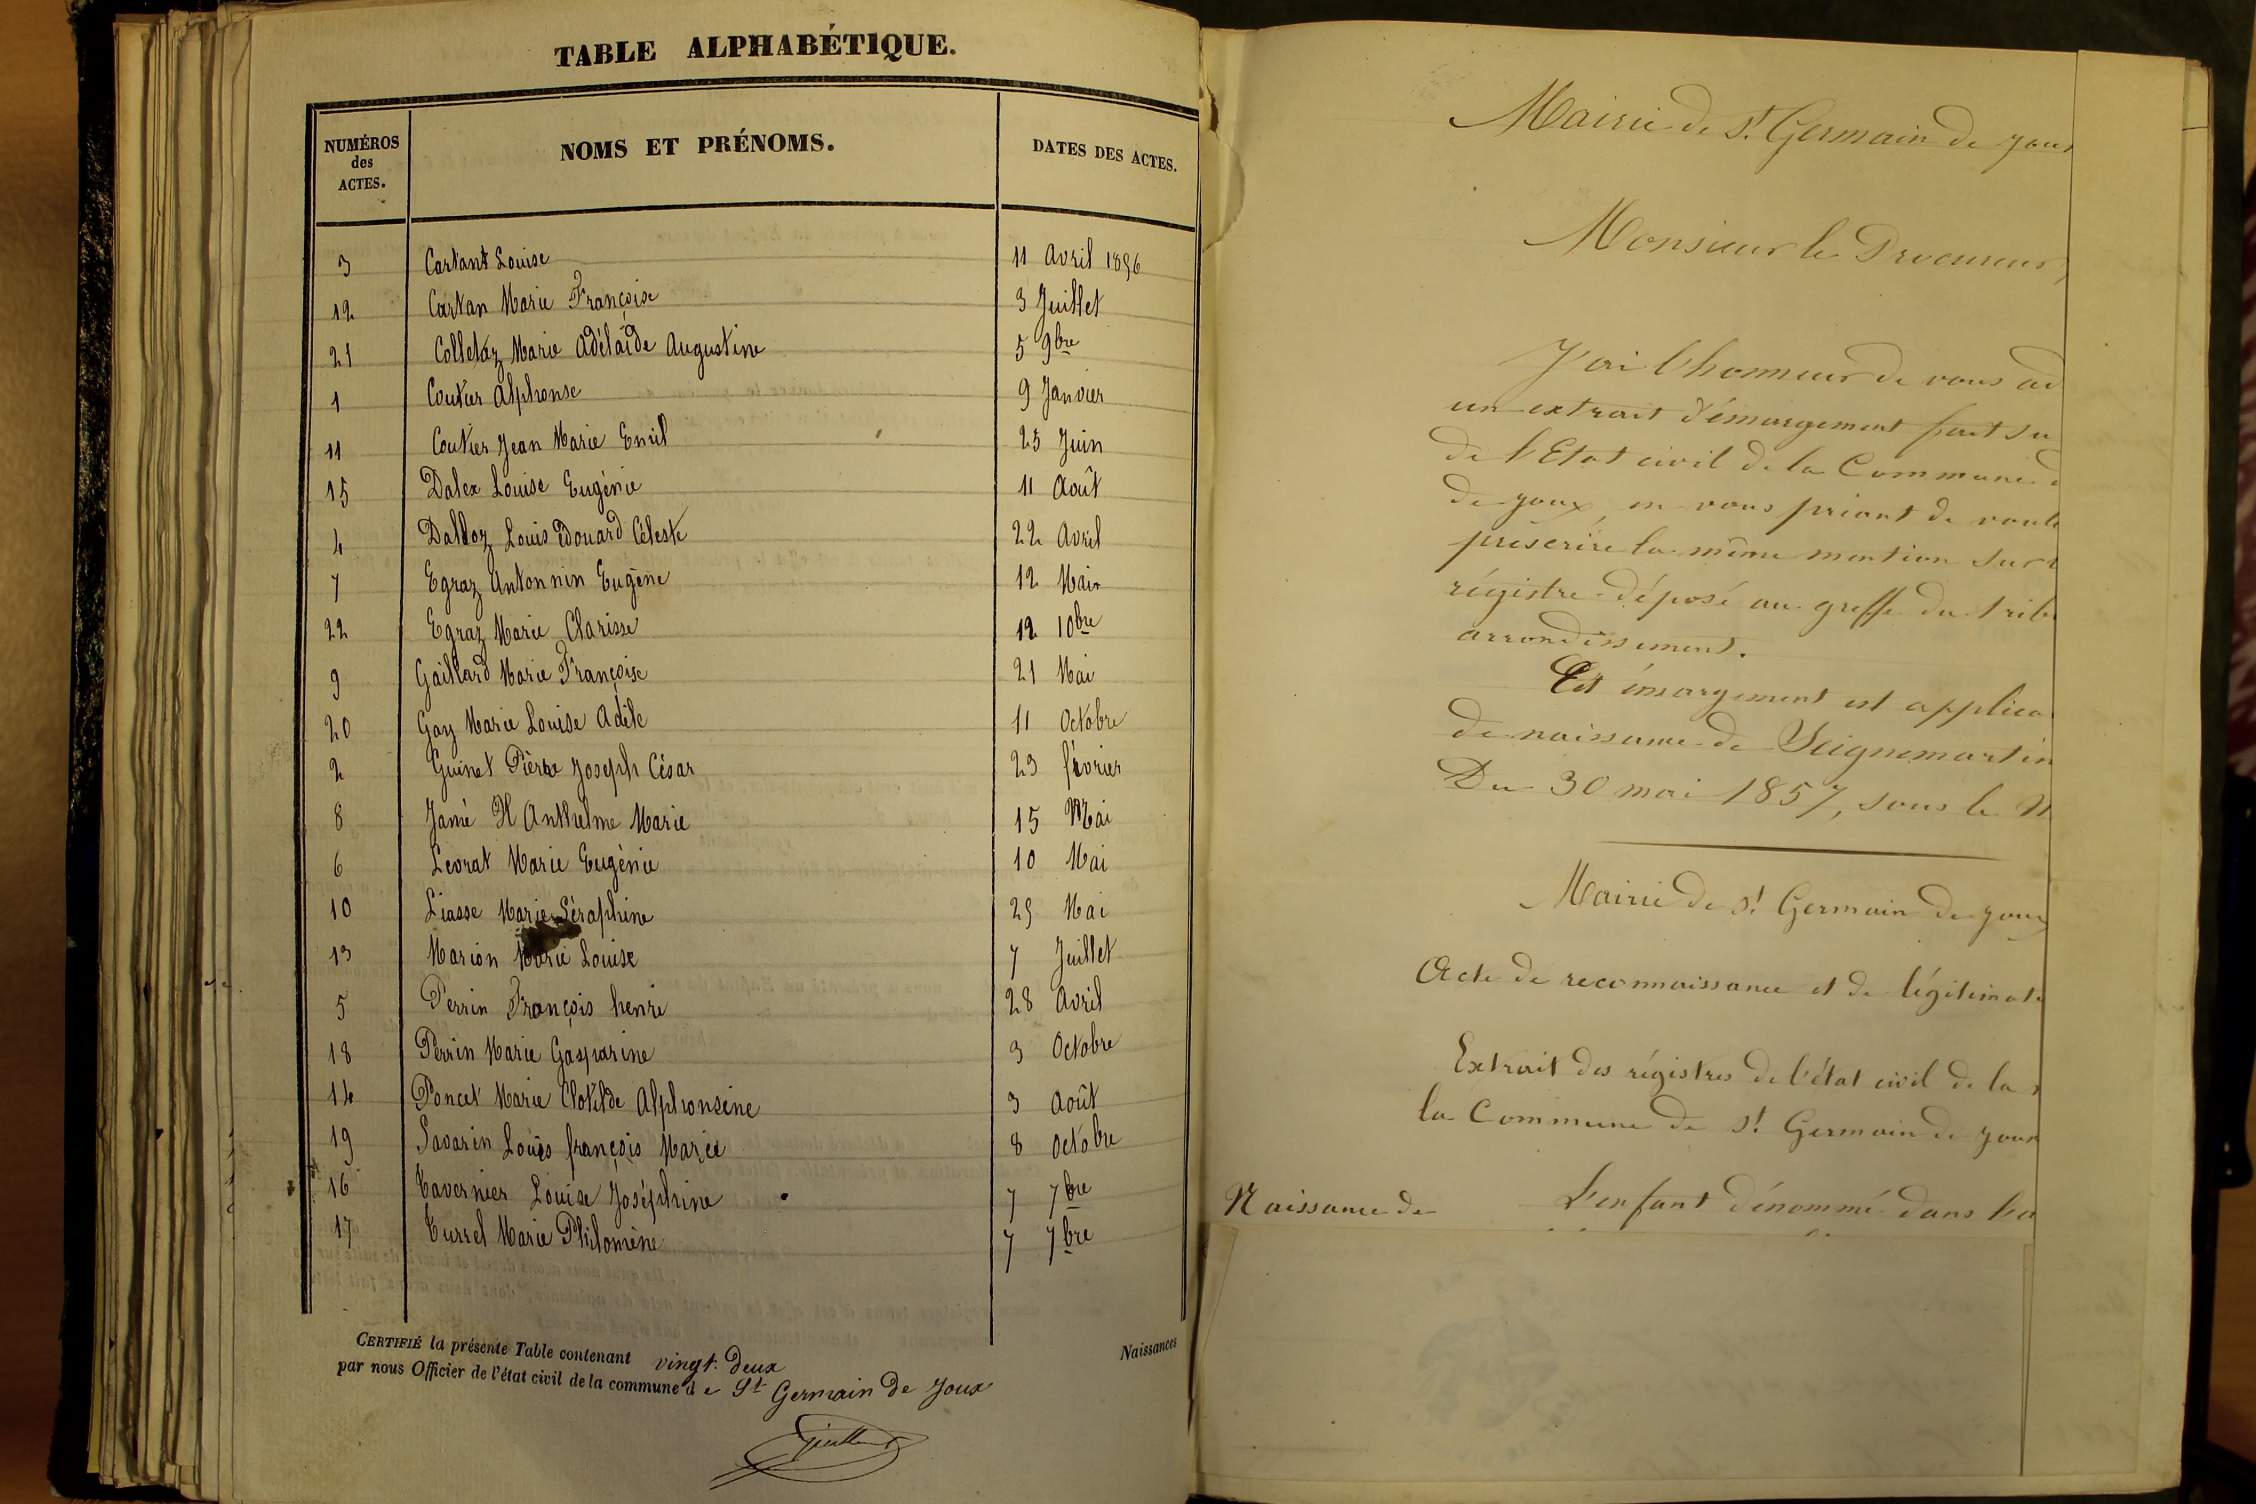 TABLE ALPHABÉTIQUE.
NUMÉROS des ACTES. NOMS ET PRÉNOMS. DATES DES ACTES.
3 Cartant Louise 11 Avril 1856
12 Cartan Marie Françoise 3 Juillet
21 Colletaz Marie Adélaïde Augustine 5 9bre
1 Coutier Alphonse 9 Janvier
11 Coutier Jean Marie Emil 25 Juin
15 Dalex Louise Eugénie 11 Août
4 Dalloz Louis Edouard Céleste 22 Avril
7 Egraz Antonnin Eugène 12 Mai
22 Egraz Marie Clarisse 12 10bre
9 Gaillard Marie Françoise 21 Mai
20 Gay Marie Louise Adèle 11 Octobre
2 Guinet Pierre Joseph César 23 février
8 Jamé Anthelme Marie 15 Mai
6 Levrat Marie Eugénie 10 Mai
10 Liasse Marie Séraphine 29 Mai
13 Marion Marie Louise 7 Juillet
5 Perrin François henri 28 Avril
18 Perrin Marie Gasparine 3 Octobre
14 Poncet Marie Clotilde Alphonsine 3 Août
19 Savarin Louis françois Marie 8 octobre
16 Tavernier Louise Joséphine 7 7bre
17 Turrel Marie Philomène 7 7bre
CERTIFIÉ la présente Table contenant vingt-deux Naissances
par nous Officier de l'état civil de la commune de St Germain de Joux
Mairie de St Germain de Joux
Monsieur le Procureur,
J'ai l'honneur de vous ad
un extrait d'émargement fait su
de l'Etat civil de la Commune d
de Joux, en vous priant de voulo
prescrire la même mention sur
régistre déposé au greffe du trib
arrondissement.
Cet émargement est applica
de naissance de Seignemartin
Du 30 mai 1857, sous le N
Mairie de St Germain de Joux
Acte de reconnaissance et de légitimat
Extrait des régistres de l'état civil de la
la Commune de St Germain de Joux
Naissance de L'enfant dénommé dans l'a